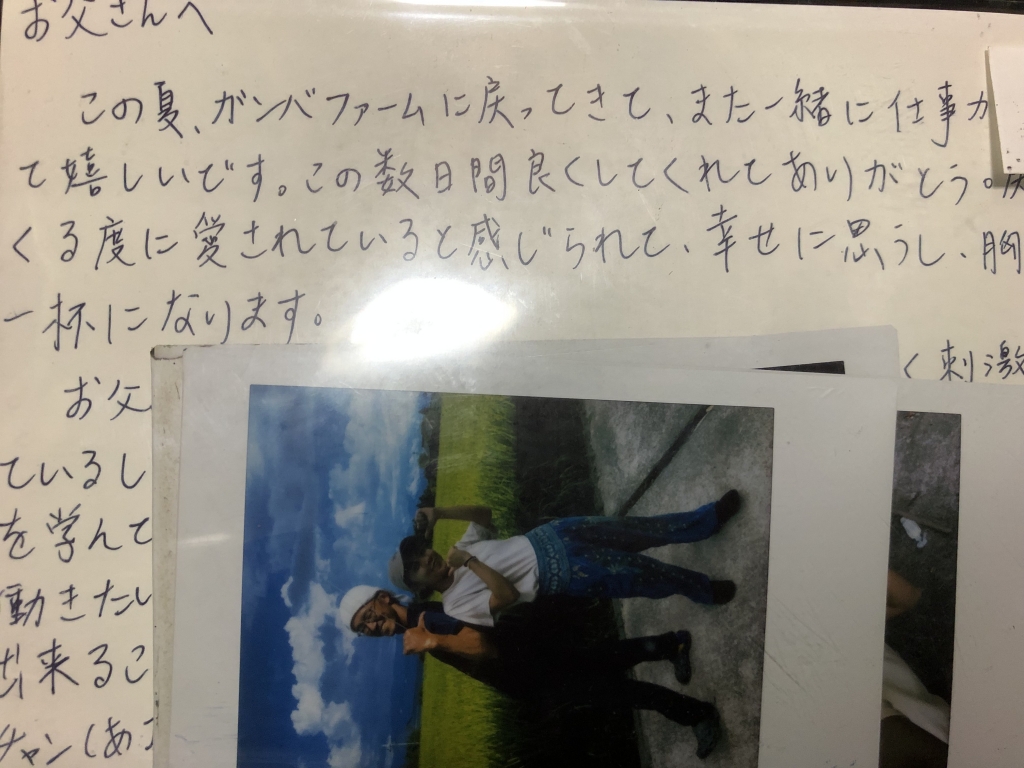 お父さんへ
この夏、ガンバファームに戻ってきて、また一緒に仕事が
て嬉しいです。この数日間良くしてくれてありがとう。戻
くる度に愛されていると感じられて、幸せに思うし、胸
一杯になります。
お父
く刺激
ているし
を学んで
働きたい
出来るこ
チャン(あ